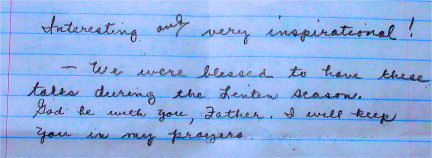 Interesting and very inspirational!
- We were blessed to have these
talks during the Linten season.
God be with you, Father. I will keep
you in my prayers.